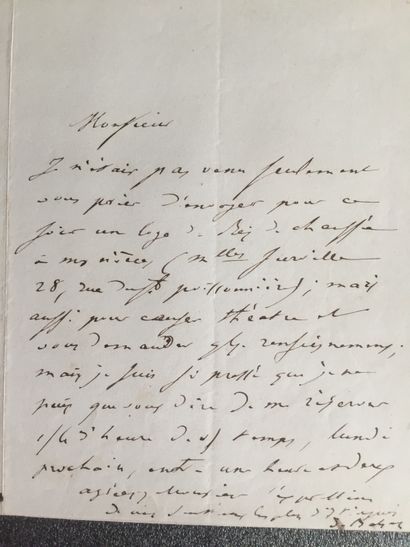 Monsieur
Je n'étais pas venu seulement
vous prier d'envoyer pour ce
soir un loge de Rez de chaussée
à mes nièces (Mlles Surville
28, rue du fb poissonnière); mais
aussi pour causer théâtre et
vous demander qlqs renseignemens;
mais je suis si pressé que je ne
puis que vous dire de me réserver
1/4 d'heure de temps, lundi
prochain, entre une heure et deux
agréez, Monsieur l'expression
de mes sentimens les plus distingués
de Balzac